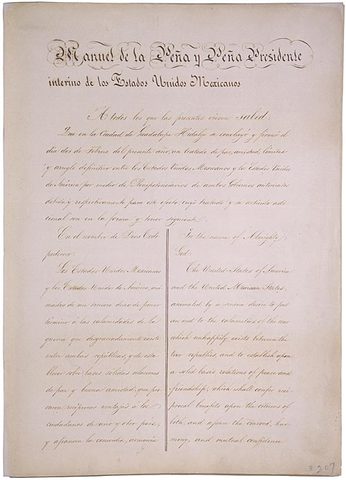 Manuel de la Peña y Peña Presidente
interino de los Estados Unidos Mexicanos
A todos los que las presentes vieren sabed:
Que en la Ciudad de Guadalupe Hidalgo se concluyó y firmó el
dia dos de Febrero del presente año, un tratado de paz, amistad, limites
y arreglo definitivo entre los Estados Unidos Mexicanos y los Estados Unidos
de America por medio de Plenipotenciarios de ambos Gobiernos autorizados
debida y respectivamente para este efecto, cuyo tratado y su articulo adi-
cional son en la forma y tenor siguiente.
En el nombre de Dios Todo-
poderoso:
Los Estados Unidos Mexicanos
y los Estados Unidos de America, ani-
mados de un sincero deseo de poner
término a las calamidades de la
guerra que desgraciadamente existe
entre ambas repúblicas, y de esta-
blecer sobre bases sólidas relaciones
de paz y buena amistad, que pro-
curen reciprocas ventajas a los
ciudadanos de uno y otro pais,
y afianzen la concordia, armonia
In the name of Almighty
God:
The United States of America
and the United Mexican States,
animated by a sincere desire to put
an end to the calamities of the war
which unhappily exists between the
two republics, and to establish upon
a solid basis relations of peace and
friendship, which shall confer reci-
procal benefits upon the citizens of
both, and assure the concord, har-
mony, and mutual confidence
207